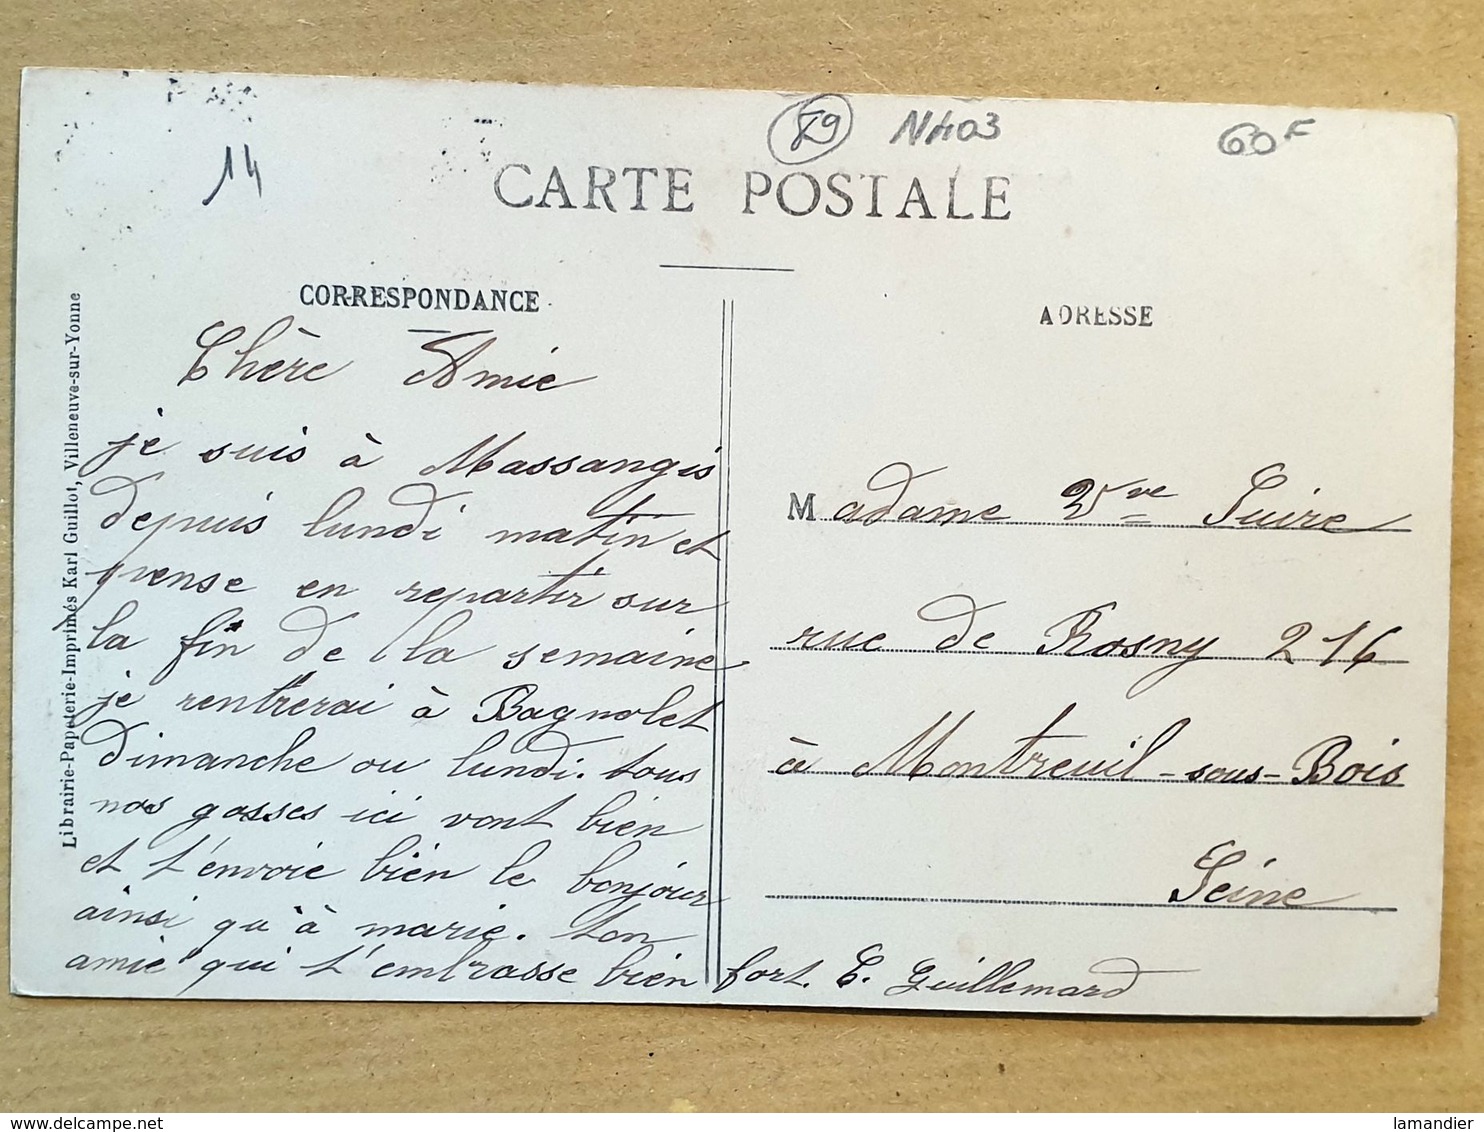 14
89 N403
60F
CARTE POSTALE
CORRESPONDANCE
ADRESSE
Librairie-Papeterie-Imprimés Karl Guillot, Villeneuve-sur-Yonne
Chère Amie
je suis à Massangis
depuis lundi matin et
pense en repartir sur
la fin de la semaine
je rentrerai à Bagnolet
dimanche ou lundi. tous
nos gosses ici vont bien
et t'envoie bien le bonjour
ainsi qu'à marie. ton
amie qui t'embrasse bien fort. E. Guillemard
Madame Vve Suire
rue de Rosny 216
à Montreuil-sous-Bois
Seine
delcampe.net
lamandier